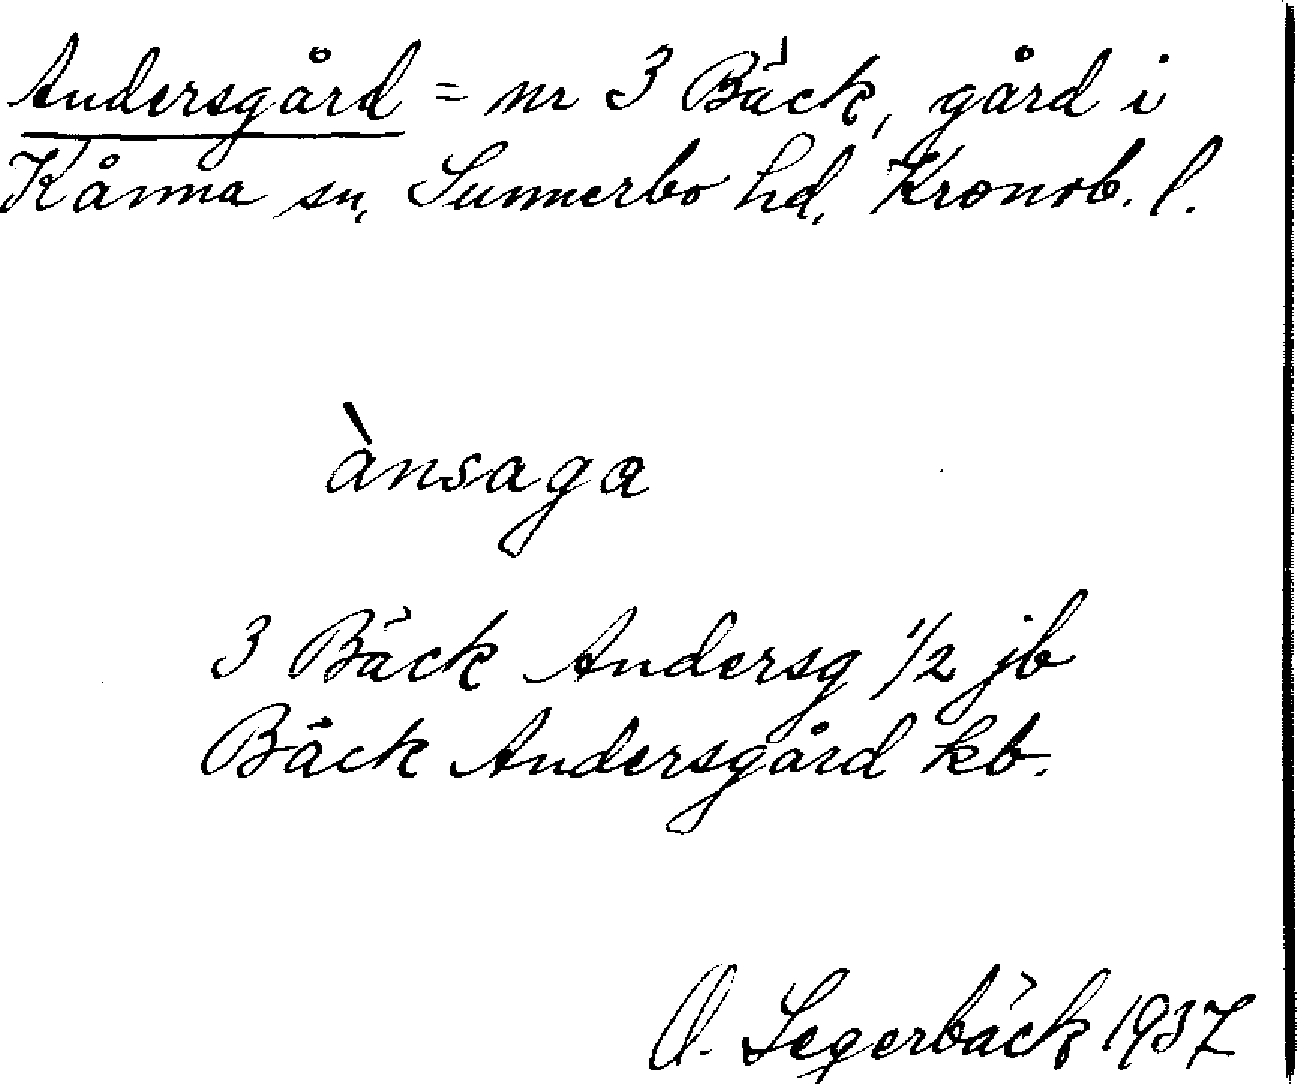 Andersgård = nr 3 Bäck, gård i
Kånna sn, Sunnerbo hd, Kronob. l.
ànsaga
3 Bäck Andersg 1/2 jb
Bäck Andersgård kb.
O. Segerbäck 1937